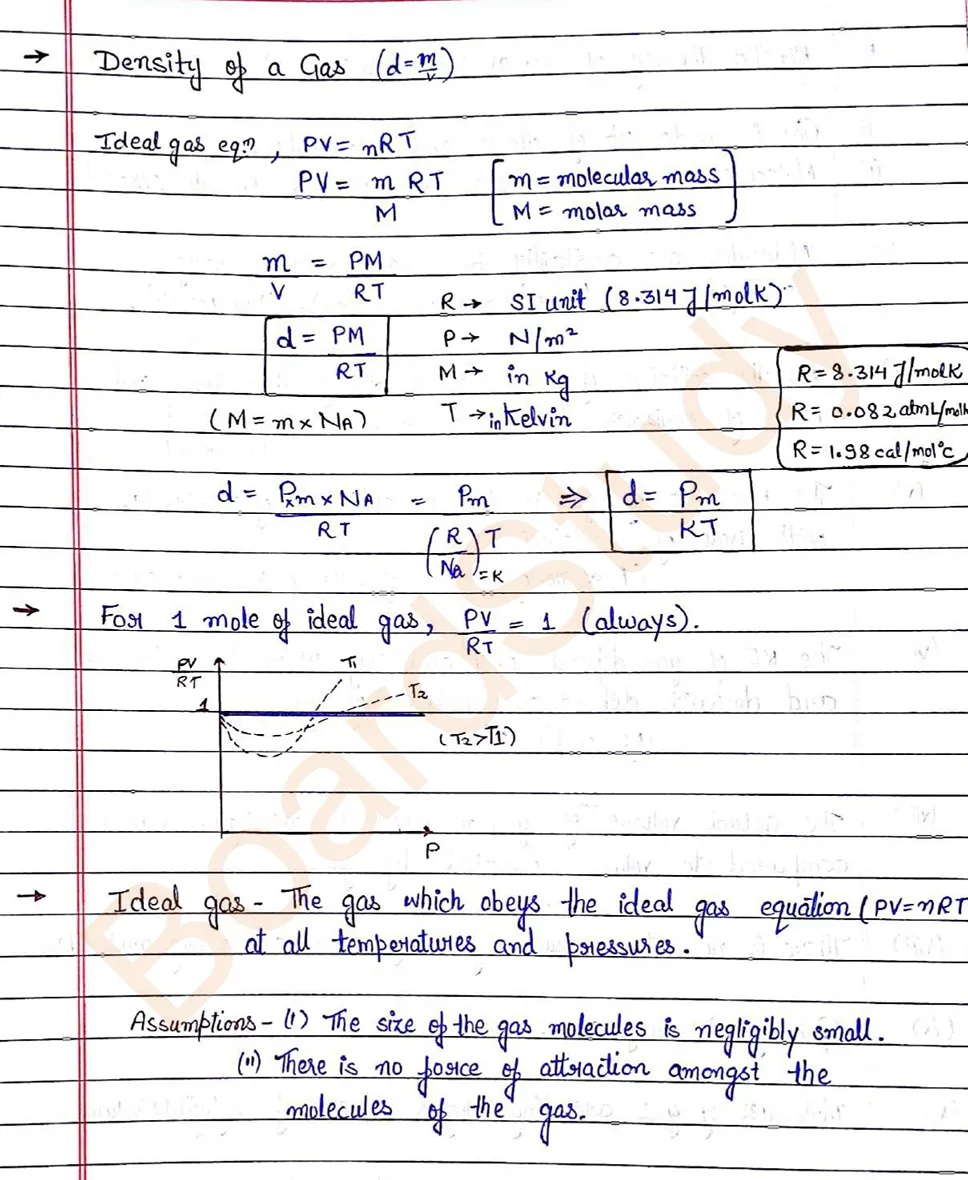 → Density of a Gas (d = m/V)
Ideal gas eqn, PV = nRT
PV = m RT / M [m = molecular mass
M = molar mass]
m/V = PM/RT
R → SI unit (8.314 J/molK)
d = PM/RT
P → N/m²
M → in Kg
(M = m × NA)
T → in Kelvin
R = 8.314 J/molK
R = 0.082 atmL/molK
R = 1.98 cal/mol°C
d = P×m × NA / RT = Pm / (R/Na)=K T ⇒ d = Pm/KT
→ For 1 mole of ideal gas, PV/RT = 1 (always).
PV/RT
T1
T2
1
(T2>T1)
P
→ Ideal gas - The gas which obeys the ideal gas equation (PV=nRT
at all temperatures and pressures.
Assumptions - (i) The size of the gas molecules is negligibly small.
(ii) There is no force of attraction amongst the
molecules of the gas.
BoardStudy